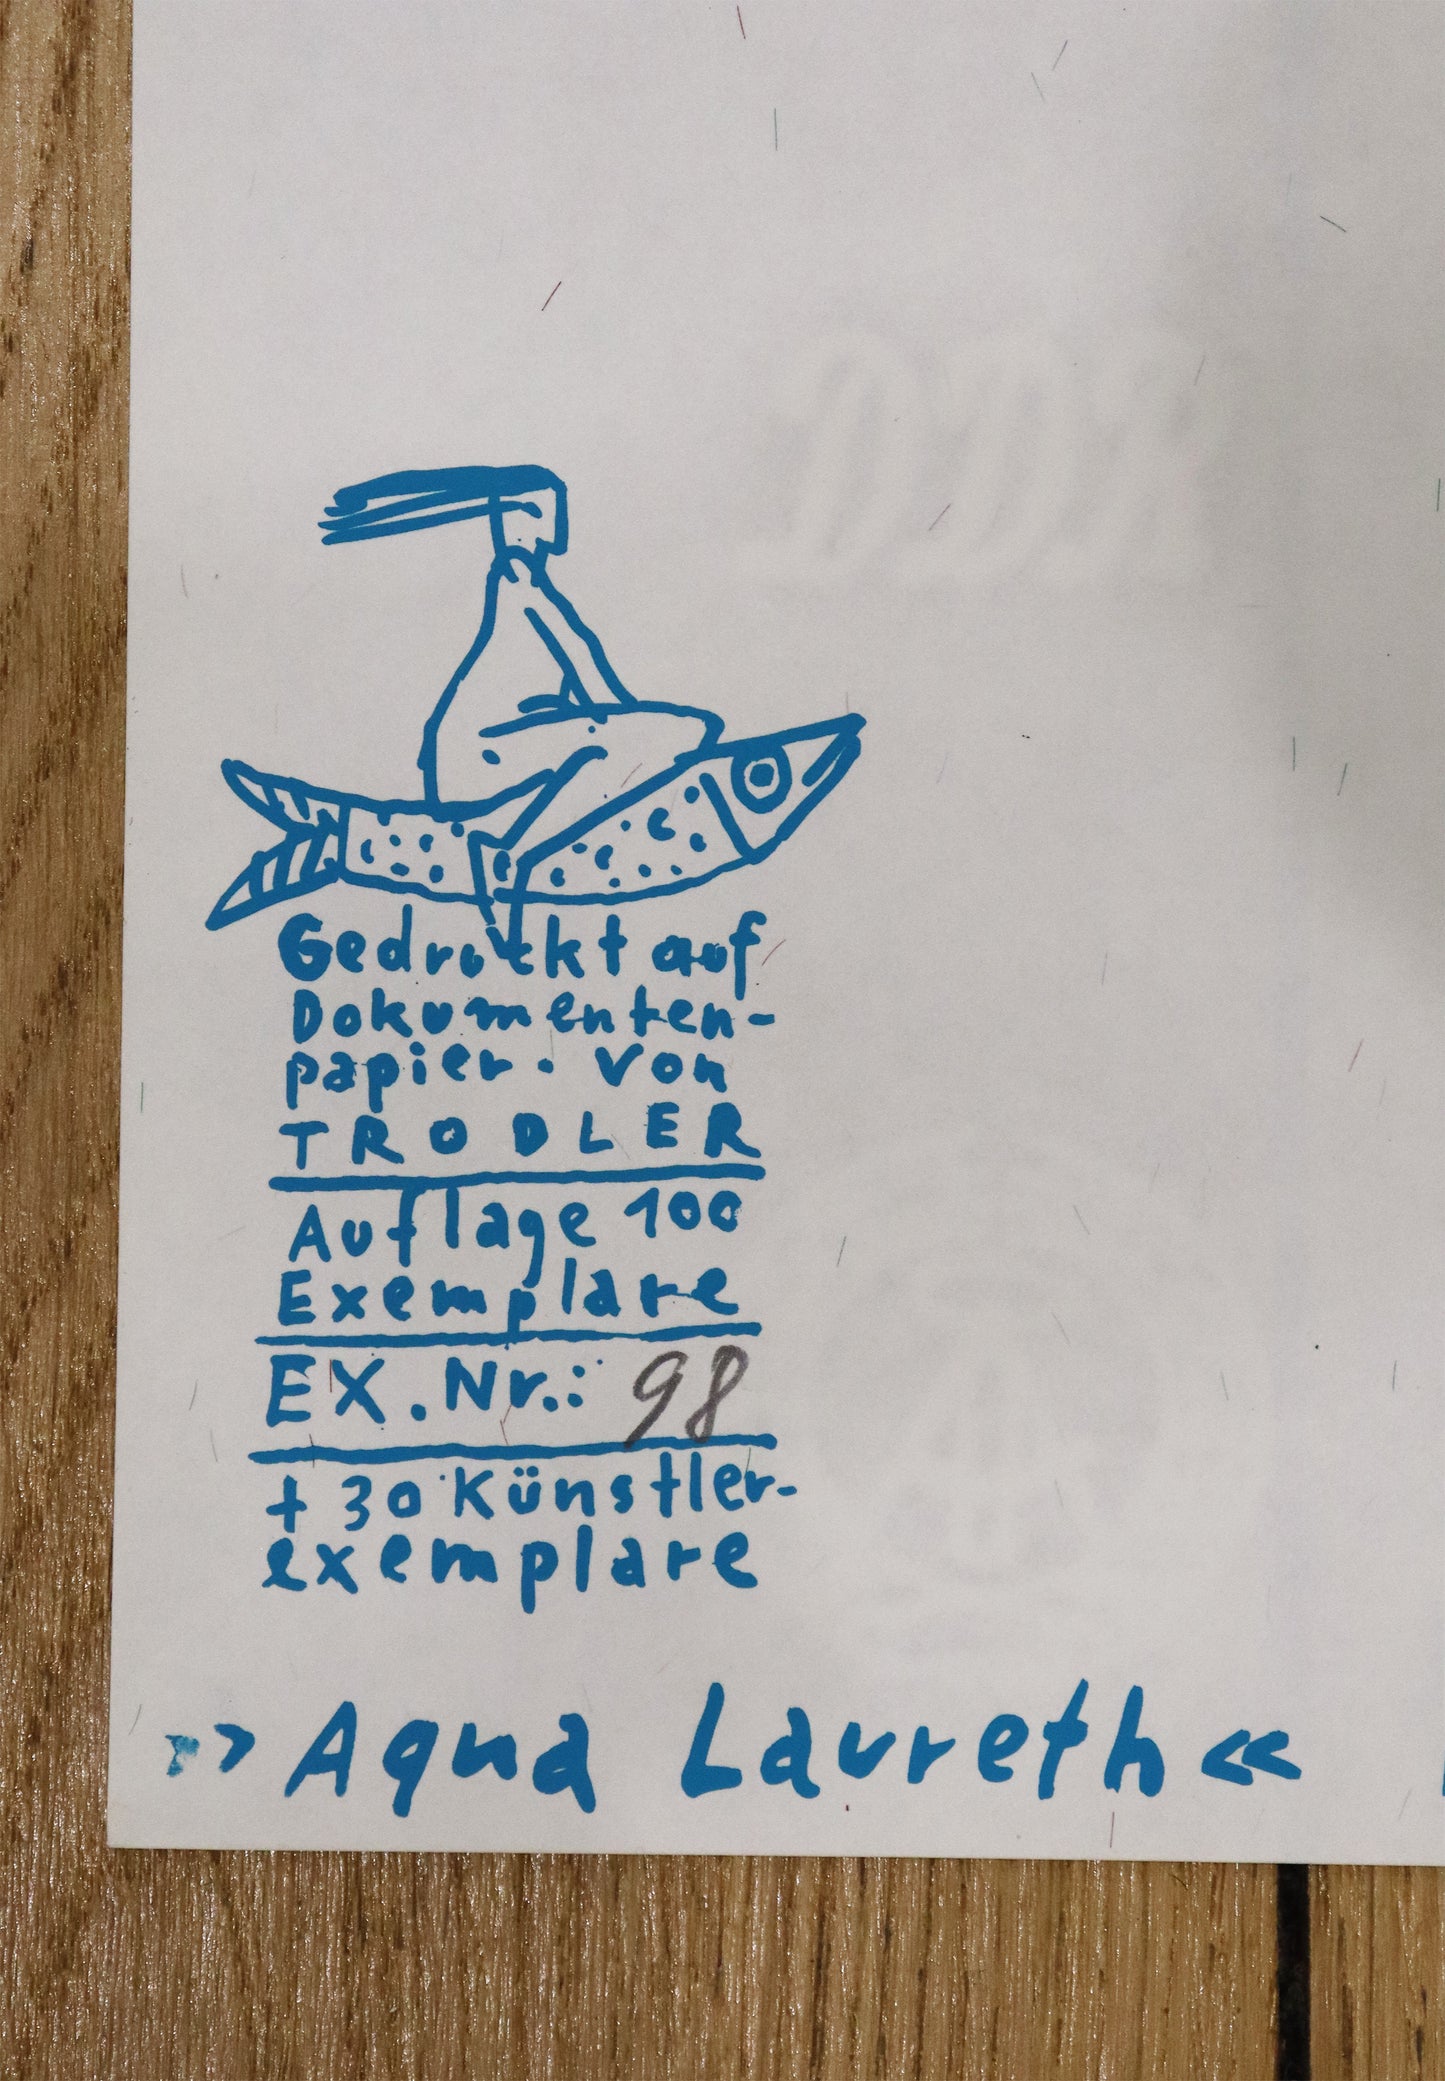 Gedruckt auf
Dokumenten-
papier. von
TRODLER
Auflage 100
Exemplare
EX. Nr.: 98
+ 30 Künstler-
exemplare
>> Aqua Laureth <<